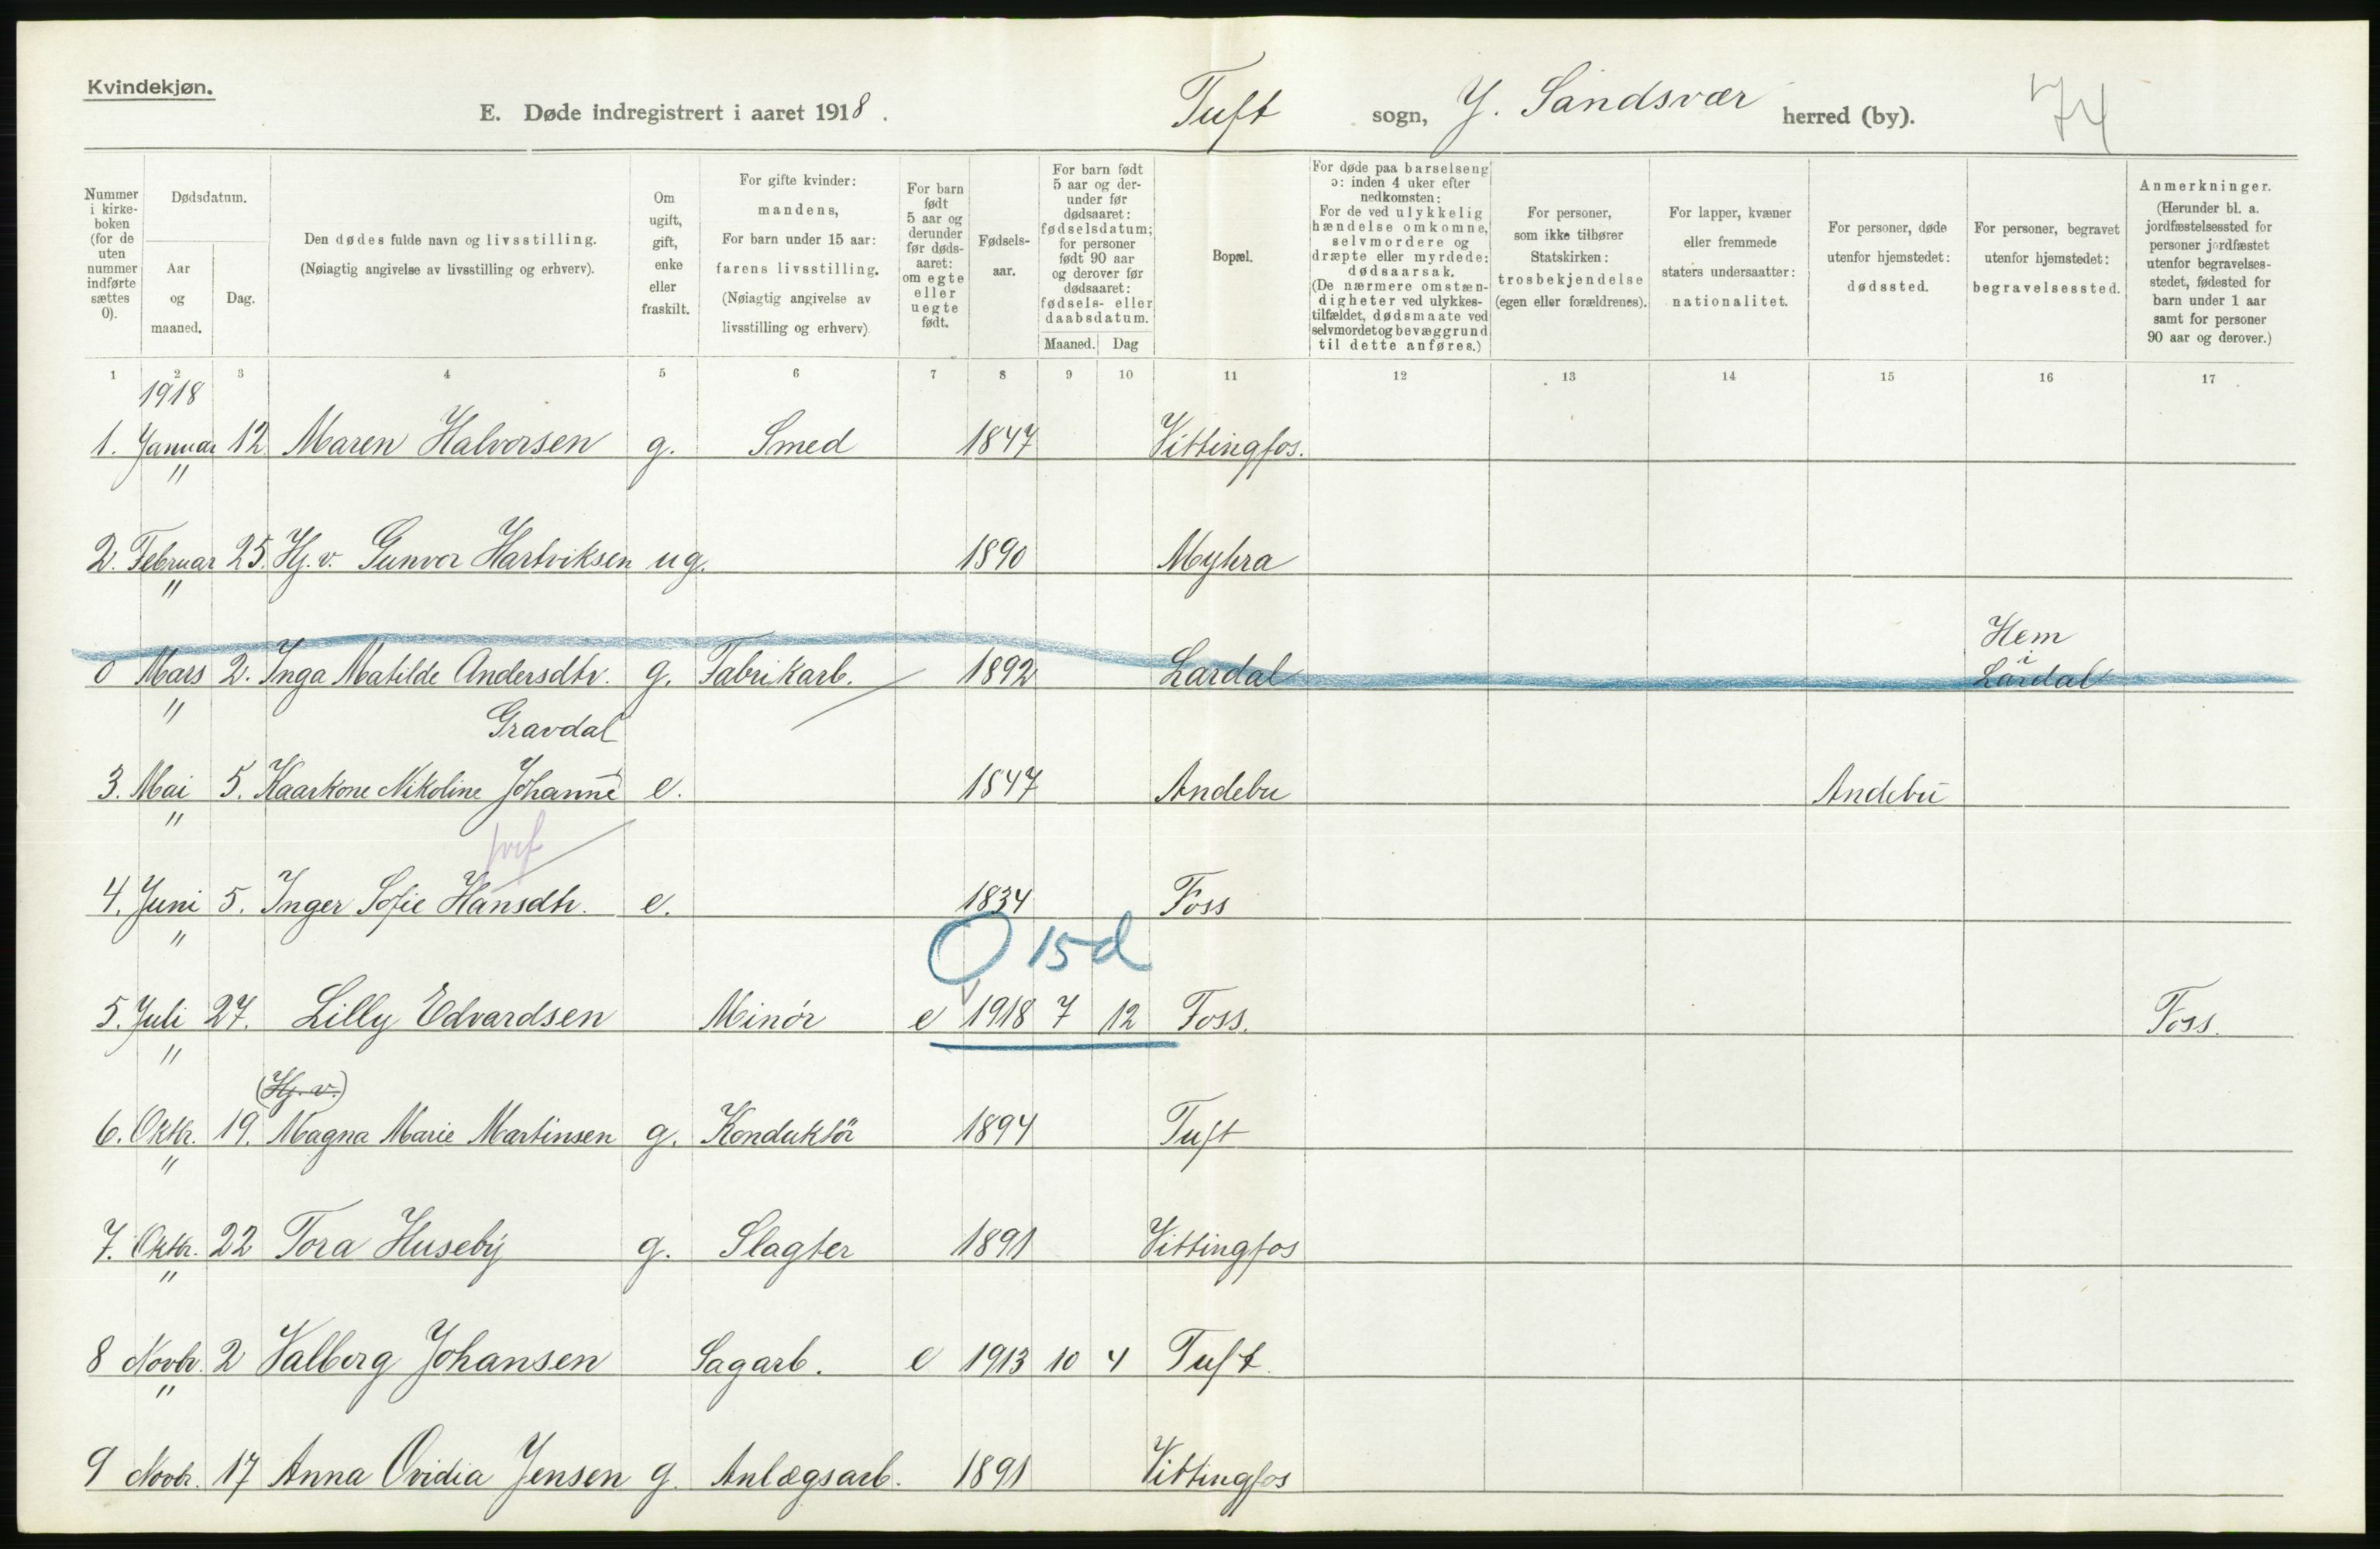 Kvindekjøn.
E. Døde indregistrert i aaret 1918. Tuft sogn, Y. Sandsvær herred (by). 74
Nummer i kirkeboken (for de uten nummer indførte sættes 0).
Dødsdatum.
Aar og maaned.
Dag.
Den dødes fulde navn og livsstilling. (Nøiagtig angivelse av livsstilling og erhverv).
Om ugift, gift, enke eller fraskilt.
For gifte kvinder: mandens, For barn under 15 aar: farens livsstilling. (Nøiagtig angivelse av livsstilling og erhverv)
For barn født 5 aar og derunder før dødsaaret: om egte eller uegte født.
Fødselsaar.
For barn født 5 aar og derunder før dødsaaret: fødselsdatum; for personer født 90 aar og derover før dødsaaret: fødsels- eller daabsdatum.
Maaned. Dag
Bopæl.
For døde paa barselseng ɔ: inden 4 uker efter nedkomsten: For de ved ulykkelig hændelse omkomne, selvmordere og dræpte eller myrdede: dødsaarsak. (De nærmere omstændigheter ved ulykkestilfældet, dødsmaate ved selvmordet og bevæggrund til dette anføres.)
For personer, som ikke tilhører Statskirken: trosbekjendelse (egen eller forældrenes).
For lapper, kvæner eller fremmede staters undersaatter: nationalitet.
For personer, døde utenfor hjemstedet: dødssted.
For personer, begravet utenfor hjemstedet: begravelsessted.
Anmerkninger. (Herunder bl. a. jordfæstelsessted for personer jordfæstet utenfor begravelsesstedet, fødested for barn under 1 aar samt for personer 90 aar og derover.)
1 2 3 4 5 6 7 8 9 10 11 12 13 14 15 16 17
1918
1. Januar 12 Maren Halvorsen g. Smed 1847 Vittingfos.
"
2. Februar 25. Hj. v. Gunvor Hartviksen ug. 1890 Myhra
"
Hem i
0 Mars 2. Inga Matilde Andersdtr. g. Fabrikarb. 1892 Lardal Lardal
" Gravdal
3. Mai 5. Kaarkone Nikoline Johanne e. 1847 Andebu Andebu
"
4. Juni 5. Inger Sofie Hansdtr. e. 1834 Foss
" 0 15d
5. Juli 27. Lilly Edvardsen Minør e 1918 7 12 Foss. Foss.
"
(Hj. v.)
6. Oktbr. 19. Magna Marie Martinsen g. Konduktör 1894 Tuft
"
7. Oktbr. 22 Tora Huseby g. Slagter 1891 Vittingfos
"
8 Novbr. 2 Valborg Johansen Sagarb. e 1913 10 4 Tuft.
"
9 Novbr. 17 Anna Ovidia Jensen g. Anlægsarb. 1891 Vittingfos